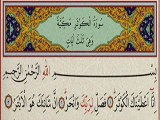 سُورَةُ الْكَوْثَرِ مَكِّيَّةٌ
وَهِيَ ثَلٰثُ اٰيَاتٍ
بِسْمِ اللّٰهِ الرَّحْمٰنِ الرَّحِيمِ
اِنَّا اَعْطَيْنَاكَ الْكَوْثَرَ فَصَلِّ لِرَبِّكَ وَانْحَرْ اِنَّ شَانِئَكَ هُوَ الْاَبْتَرُ